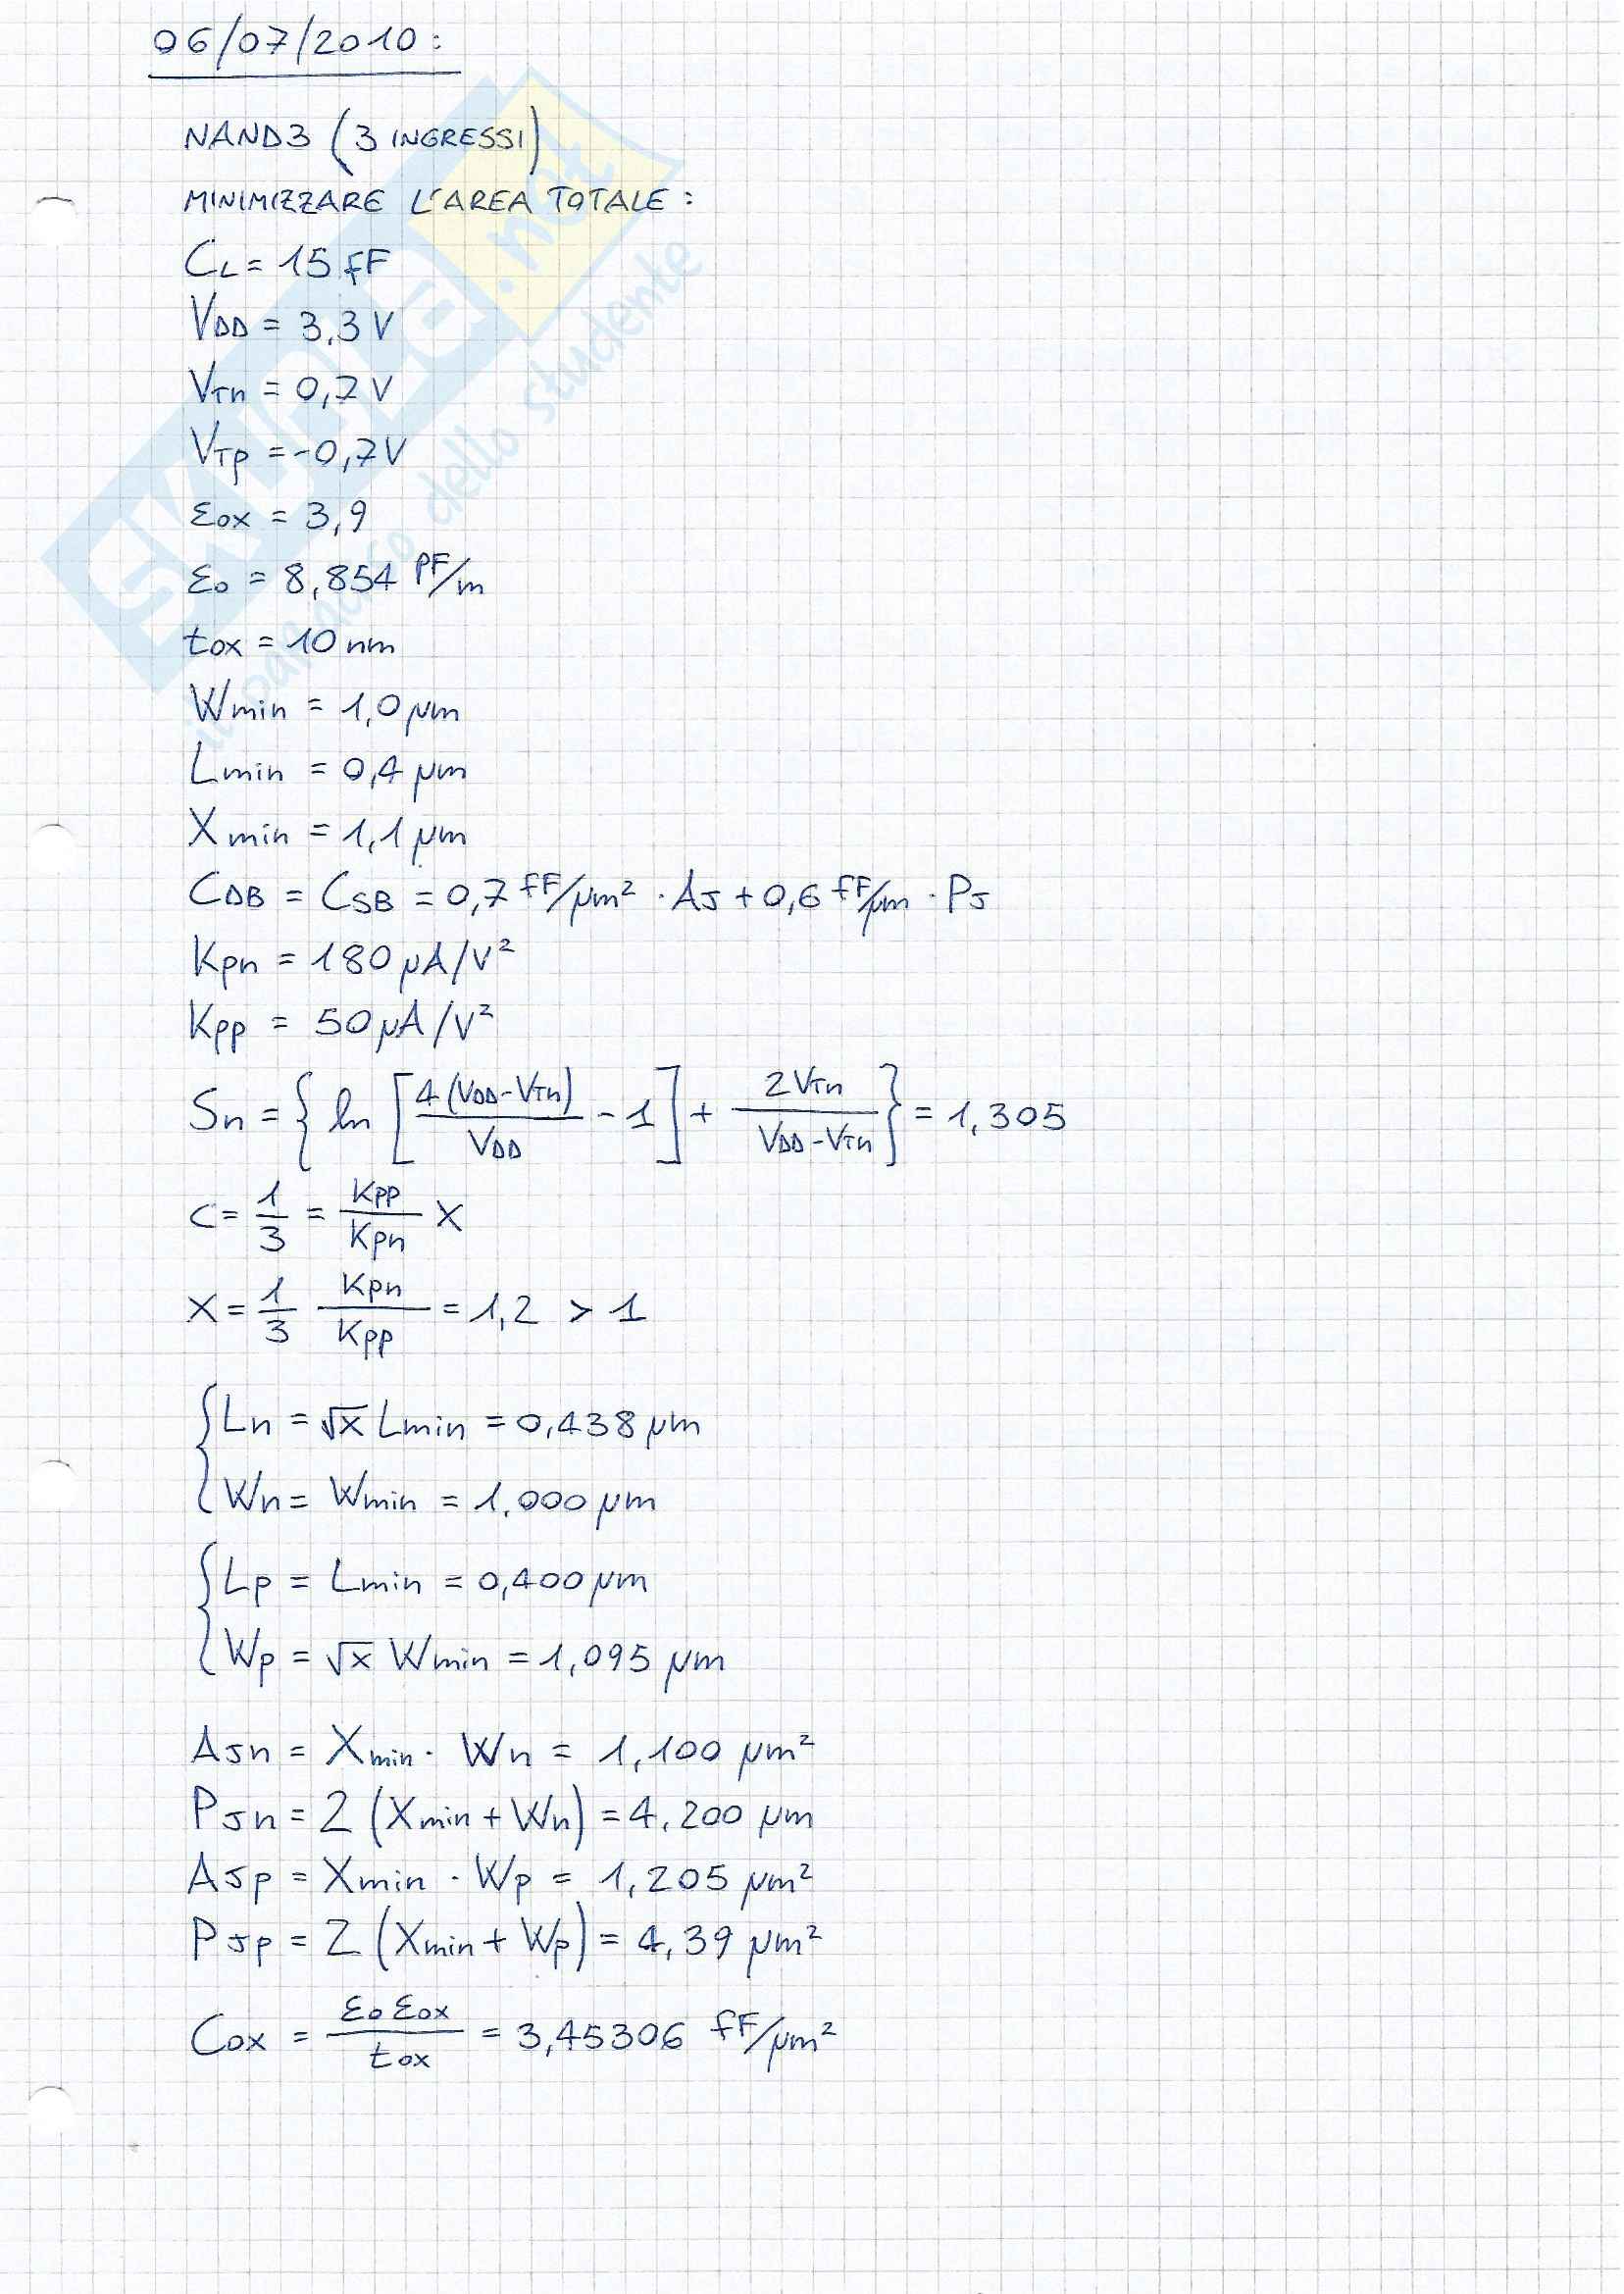 06/07/2010:
NAND3 (3 INGRESSI)
MINIMIZZARE L'AREA TOTALE:
CL = 15 fF
VDD = 3,3 V
VTn = 0,7 V
VTp = -0,7 V
εox = 3,9
ε0 = 8,854 pF/m
tox = 10 nm
Wmin = 1,0 μm
Lmin = 0,4 μm
Xmin = 1,1 μm
CDB = CSB = 0,7 fF/μm² · AJ + 0,6 fF/μm · PJ
Kpn = 180 μA/V²
Kpp = 50 μA/V²
Sn = { ln [ 4(VDD-VTn)/VDD - 1 ] + 2VTn/(VDD-VTn) } = 1,305
C = 1/3 = Kpp/Kpn X
X = 1/3 Kpn/Kpp = 1,2 > 1
Ln = √x Lmin = 0,438 μm
Wn = Wmin = 1,000 μm
Lp = Lmin = 0,400 μm
Wp = √x Wmin = 1,095 μm
AJn = Xmin · Wn = 1,100 μm²
PJn = 2 (Xmin + Wn) = 4,200 μm
AJp = Xmin · Wp = 1,205 μm²
PJp = 2 (Xmin + Wp) = 4,39 μm²
Cox = ε0 εox / tox = 3,45306 fF/μm²
SKUOLA.net
il paradiso dello studente